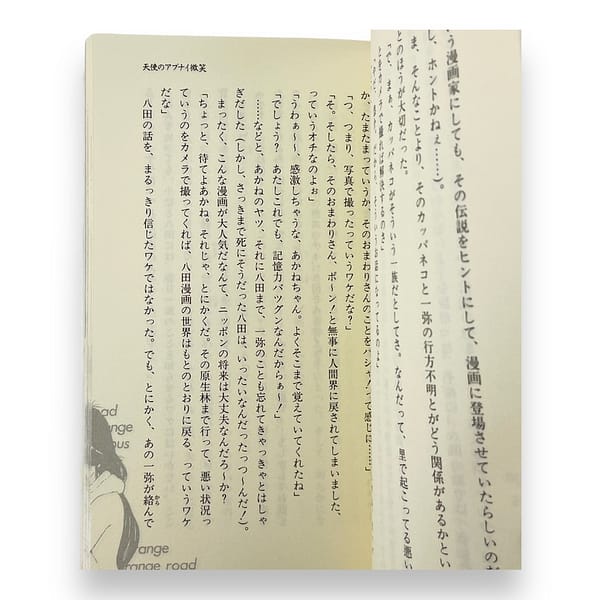 う漫画家にしても、その伝説をヒントにして、漫画に登場させていたらしいのだ
し、ホントかねぇ……)。
ま、そんなことより、そのカッパネコと一弥の行方不明とがどう関係があるかとい
とのほうが大切だった。
「で、まぁ、カッパネコがそういう一族だとしてさ。なんだって、里で起こってる悪い
とをカメラで撮れば解決するのさ」
か、たまたまっていうか、そのおまわりさんのことをパシャ!って感じに……」
「つ、つまり、写真で撮ったっていうワケだな?」
「そ。そしたら、そのおまわりさん、ボ〜ン!と無事に人間界に戻されてしまいました、
っていうオチなのよぉ」
「うわぁ〜〜、感激しちゃうな、あかねちゃん。よくそこまで覚えていてくれたね」
「でしょう? あたしこれでも、記憶力バツグンなんだからぁ〜!」
……などと、あかねのヤツ、それに八田まで、一弥のことも忘れてきゃっきゃとはしゃ
ぎだした(しかし、さっきまで死にそうだった八田は、いったいなんだったっつ〜んだ!)。
まったく、こんな漫画が大人気だなんて、ニッポンの将来は大丈夫なんだろ〜か?
「ちょっと、待てよあかね。それじゃ、とにかくだ。その原生林まで行って、悪い状況っ
ていうのをカメラで撮ってくれば、八田漫画の世界はもとのとおりに戻る、っていうワケ
だな」
八田の話を、まるっきり信じたワケではなかった。でも、とにかく、あの一弥が絡んで
から
天使のアブナイ微笑
ad
ange
ous
range
range road